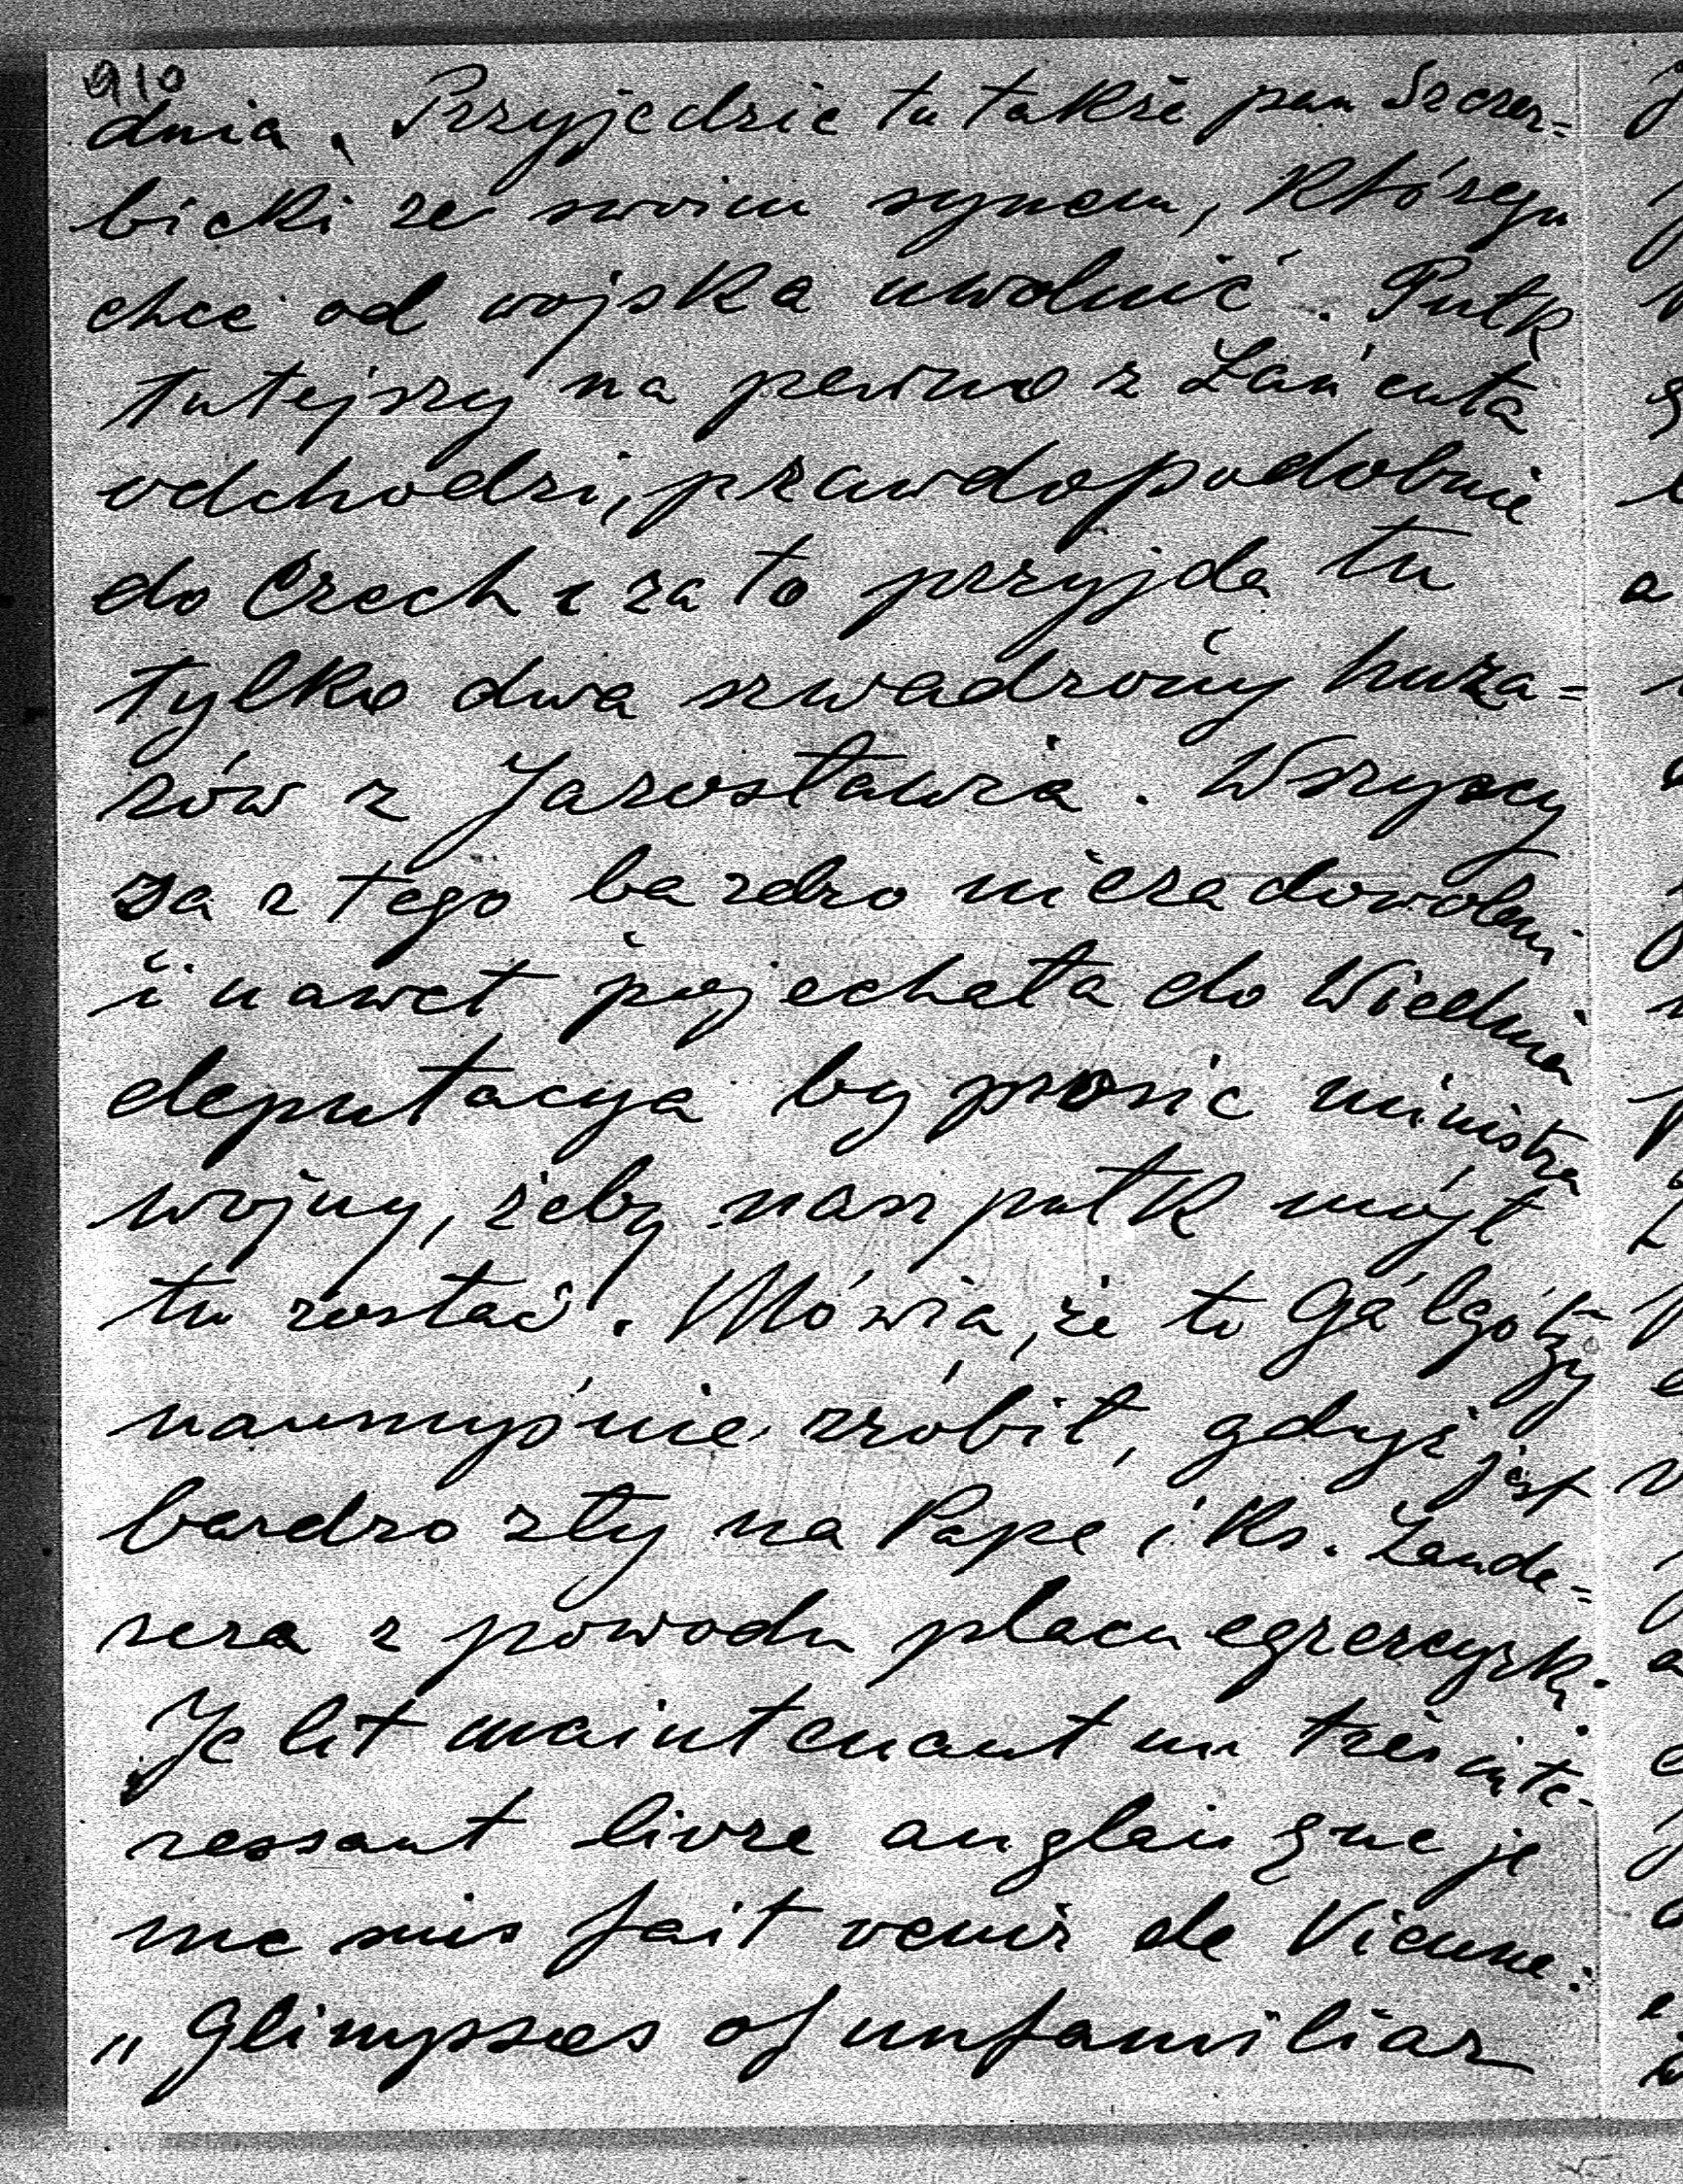 910
dnia. Przyjedzie tu także pan Szczer=
bicki ze swoim synem, którego
chce od wojska uwolnić. Pułk
tutejszy na pewno z Łańcuta
odchodzi, prawdopodobnie
do Czech i za to przyjdą tu
tylko dwa szwadrony huza=
rów z Jarosławia. Wszyscy
są z tego bardzo niezadowoleni
i nawet pojechała do Wiednia
deputacya by prosić ministra
wojny, żeby nasz pułk mógł
tu zostać. Mówią, że to Gálgótzy
naumyśnie zrobił, gdyż jest
bardzo zły na Papę i Ks. Lande=
sera z powodu placu egzercyrki.
Je lit maintenant un très inte-
ressant livre anglais que je
me suis fait venir de Vienne:
„Glimpsees of unfamiliar